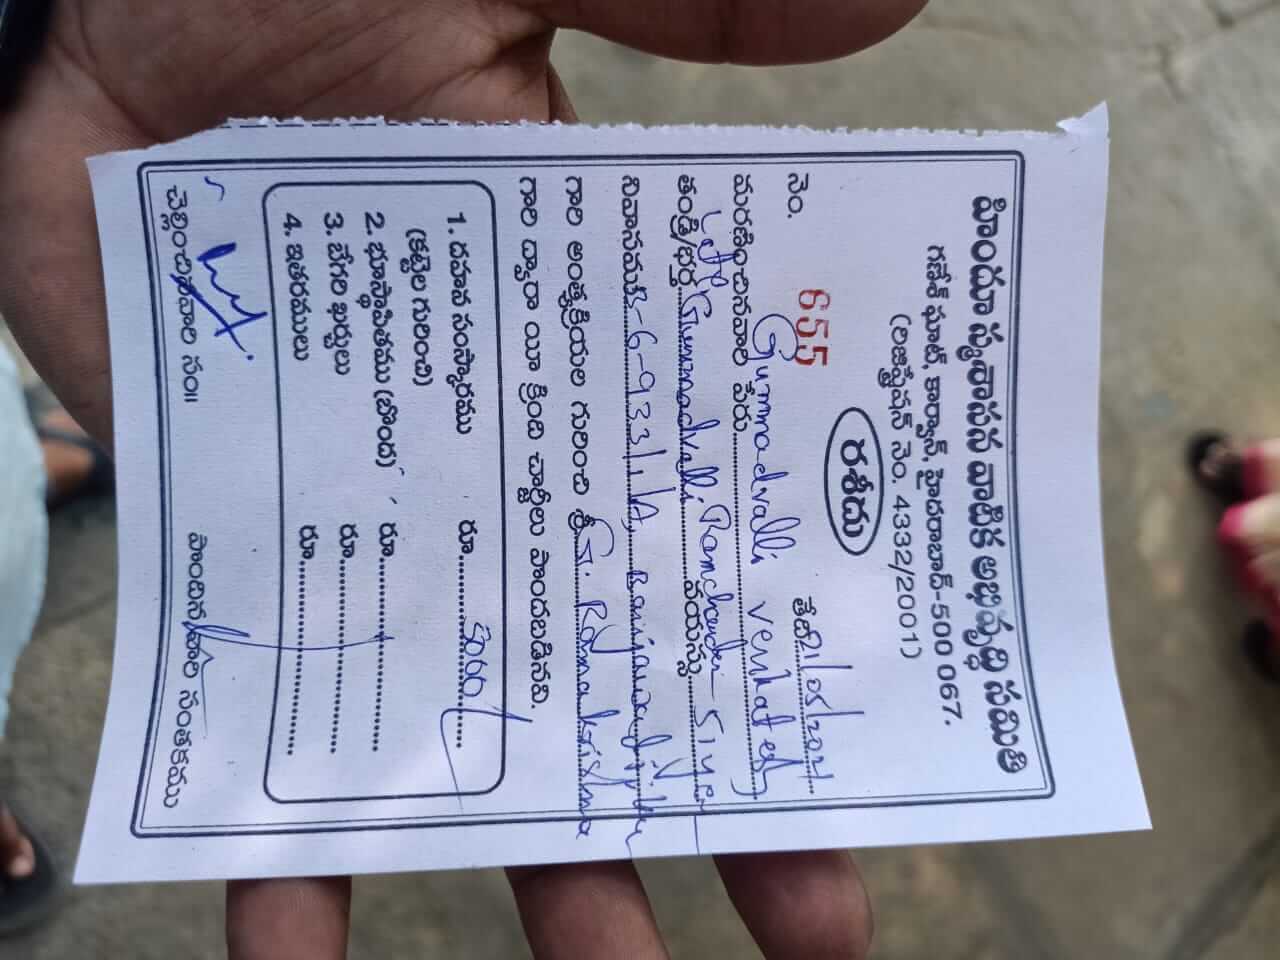 హిందూ స్మశాసన వాటిక అభివృద్ధి సమితి
గణేశ్ ఘాట్, కార్వాన్, హైదరాబాద్-500 067.
(రిజిస్ట్రేషన్ నెం. 4332/2001)
రశీదు
నెం. 655 తేది 21/05/2021
మరణించినవారి పేరు Gummadvalli Venkatesh
తండ్రి/భర్త Late Gummadvalli Ramchander వయస్సు 51 yer
నివాసము 8-6-933/1/A,
గారి అంత్యక్రియల గురించి శ్రీ G. Rama krishna
గారి ద్వారా యీ క్రింది చార్జీలు పొందబడినవి.
1. దహన సంస్కారము రూ. 5000/-
(కట్టెల గురించి)
2. భూస్థాపితము (బొంద) రూ.
3. వేగరి ఖర్చులు రూ.
4. ఇతరములు రూ.
చెల్లించినవారి సం॥ పొందిన వారి సంతకము